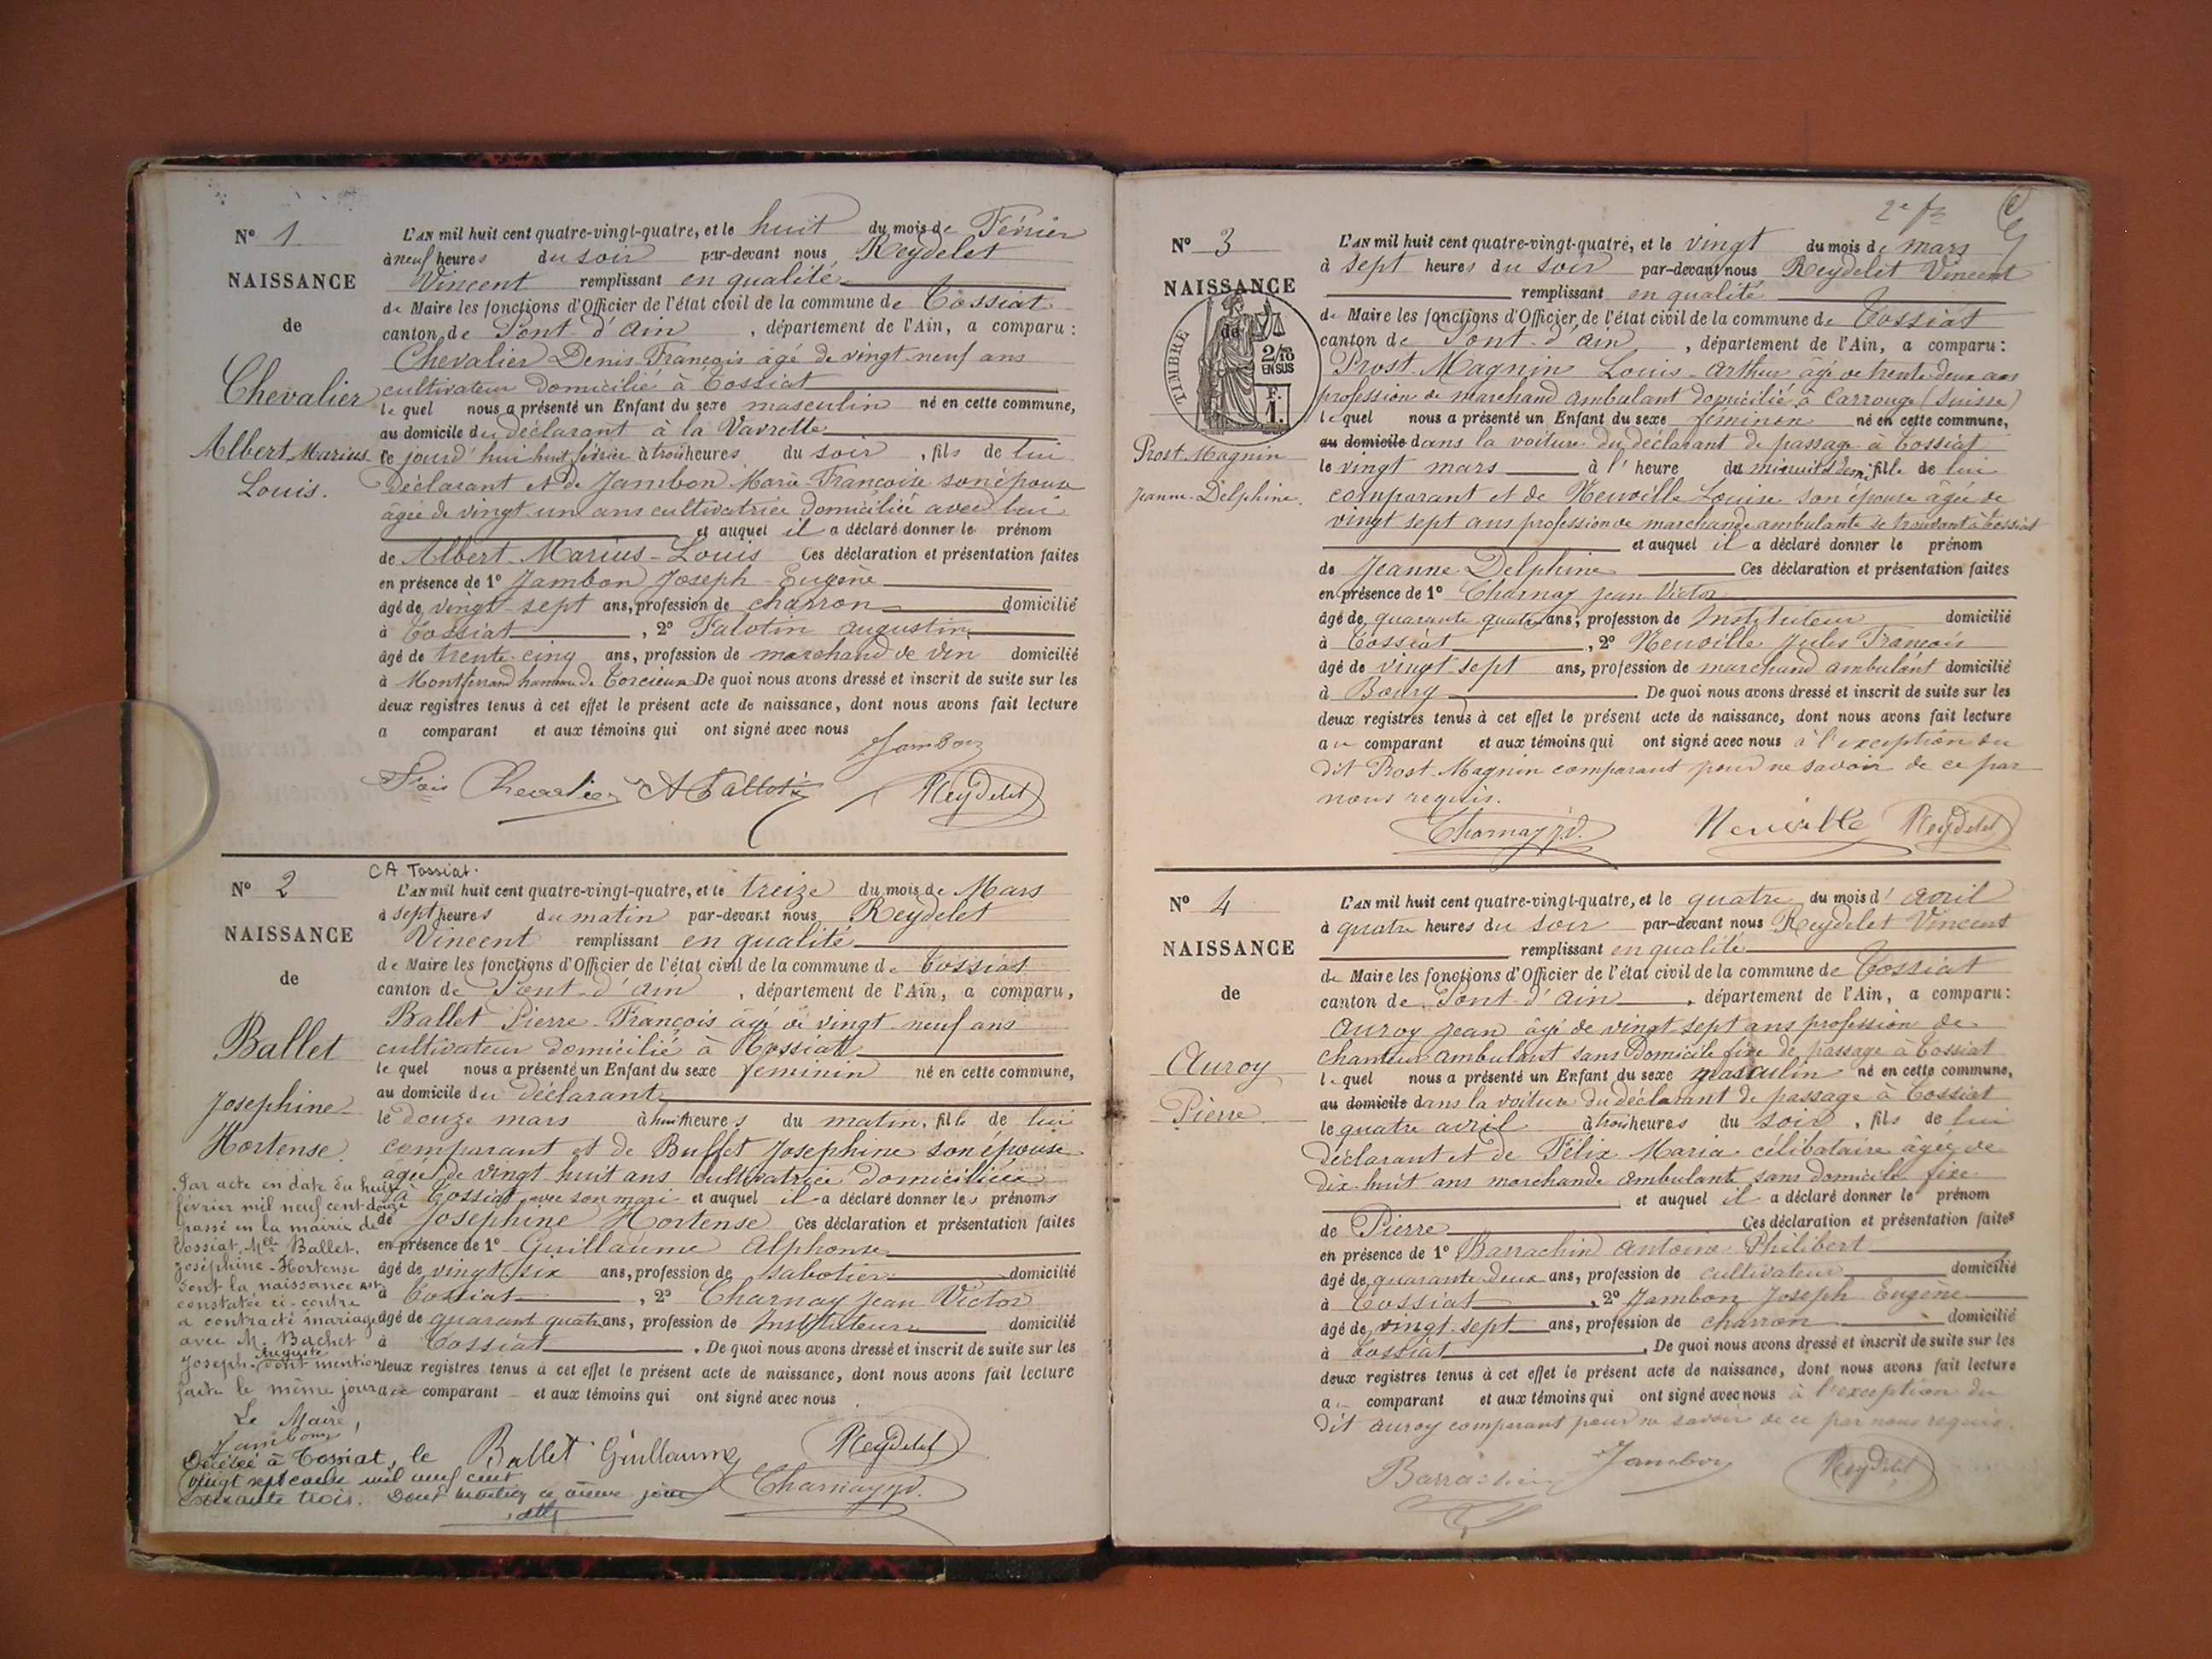 N° 1
NAISSANCE
de
Chevalier
Albert Marius
Louis.
L'AN mil huit cent quatre-vingt-quatre, et le huit du mois de Février
à neuf heures du soir par-devant nous Reydelet
Vincent remplissant en qualité
de Maire les fonctions d'Officier de l'état civil de la commune de Tossiat
canton de Pont-d'Ain, département de l'Ain, a comparu :
Chevalier Denis-François âgé de vingt-neuf ans
cultivateur domicilié à Tossiat
lequel nous a présenté un Enfant du sexe masculin né en cette commune,
au domicile du déclarant à la Vavrette
le jourd'hui huit février à trois heures du soir, fils de lui
déclarant et de Jambon Marie Françoise son épouse
âgée de vingt-un ans cultivatrice domiciliée avec lui
et auquel il a déclaré donner le prénom
de Albert-Marius-Louis Ces déclaration et présentation faites
en présence de 1° Jambon Joseph-Eugène
âgé de vingt-sept ans, profession de charron domicilié
à Tossiat, 2° Falotin Augustin
âgé de trente-cinq ans, profession de marchand de vin domicilié
à Montferrand hameau de Torcieux De quoi nous avons dressé et inscrit de suite sur les
deux registres tenus à cet effet le présent acte de naissance, dont nous avons fait lecture
a comparant et aux témoins qui ont signé avec nous
Jambon
Fois Chevalier Reydelet
CA Tossiat.
N° 2
NAISSANCE
de
Ballet
Josephine
Hortense.
L'AN mil huit cent quatre-vingt-quatre, et le treize du mois de Mars
à sept heures du matin par-devant nous Reydelet
Vincent remplissant en qualité
de Maire les fonctions d'Officier de l'état civil de la commune de Tossiat
canton de Pont-d'Ain, département de l'Ain, a comparu,
Ballet Pierre-François âgé de vingt-neuf ans
cultivateur domicilié à Tossiat
lequel nous a présenté un Enfant du sexe féminin né en cette commune,
au domicile du déclarant
le douze mars à huit heures du matin, fille de lui
comparant et de Buffet Josephine son épouse
âgée de vingt huit ans cultivatrice domiciliée
à Tossiat avec son mari et auquel il a déclaré donner les prénoms
de Josephine Hortense Ces déclaration et présentation faites
en présence de 1° Guillaume Alphonse
âgé de vingt six ans, profession de sabotier domicilié
à Tossiat, 2° Charnay Jean Victor
âgé de quarant quatre ans, profession de Instituteur domicilié
à Tossiat. De quoi nous avons dressé et inscrit de suite sur les
deux registres tenus à cet effet le présent acte de naissance, dont nous avons fait lecture
au comparant et aux témoins qui ont signé avec nous
Par acte en date du huit
février mil neuf cent douze
passé en la mairie de
Tossiat, Mlle Ballet,
Joséphine-Hortense
dont la naissance est
constatée ci-contre
a contracté mariage
avec M. Bachet
Joseph-Auguste dont mention
faite le même jour
Le Maire,
Jambon
Ballet Guillaume Reydelet
Charnay J.V.
Décédée à Tossiat, le
vingt sept mil neuf cent
soixante trois. Dont mention ce même jour
N° 3
NAISSANCE
de
TIMBRE
2/10
EN SUS
F.
1.
Prost-Magnin
Jeanne-Delphine.
2e
L'AN mil huit cent quatre-vingt-quatre, et le vingt du mois de mars
à sept heures du soir par-devant nous Reydelet Vincent
remplissant en qualité
de Maire les fonctions d'Officier de l'état civil de la commune de Tossiat
canton de Pont-d'Ain, département de l'Ain, a comparu :
Prost-Magnin Louis-Arthur âgé de trente deux ans
profession de marchand ambulant domicilié à Carrouge (Suisse)
lequel nous a présenté un Enfant du sexe féminin né en cette commune,
au domicile dans la voiture du déclarant de passage à Tossiat
le vingt mars à l'heure du minuit & demi fille de lui
comparant et de Neuville Louise son épouse âgée de
vingt sept ans profession de marchande ambulante se trouvant à Tossiat
et auquel il a déclaré donner le prénom
de Jeanne Delphine Ces déclaration et présentation faites
en présence de 1° Charnay Jean Victor
âgé de quarante quatre ans, profession de Instituteur domicilié
à Tossiat, 2° Neuville Jules François
âgé de vingt sept ans, profession de marchand ambulant domicilié
à Bourg. De quoi nous avons dressé et inscrit de suite sur les
deux registres tenus à cet effet le présent acte de naissance, dont nous avons fait lecture
au comparant et aux témoins qui ont signé avec nous à l'exception du
dit Prost-Magnin comparant pour ne savoir de ce par
nous requis.
Charnay J.V. Neuville Reydelet
N° 4
NAISSANCE
de
Auroy
Pierre
L'AN mil huit cent quatre-vingt-quatre, et le quatre du mois d'avril
à quatre heures du soir par-devant nous Reydelet Vincent
remplissant en qualité
de Maire les fonctions d'Officier de l'état civil de la commune de Tossiat
canton de Pont-d'Ain, département de l'Ain, a comparu :
Auroy Jean âgé de vingt sept ans profession de
chanteur ambulant sans domicile fixe de passage à Tossiat
lequel nous a présenté un Enfant du sexe masculin né en cette commune,
au domicile dans la voiture du déclarant de passage à Tossiat
le quatre avril à trois heures du soir, fils de lui
déclarant et de Félix Maria célibataire âgée de
dix-huit ans marchande ambulante sans domicile fixe
et auquel il a déclaré donner le prénom
de Pierre Ces déclaration et présentation faites
en présence de 1° Barrachin Antoine Philibert
âgé de quarante deux ans, profession de cultivateur domicilié
à Tossiat, 2° Jambon Joseph Eugène
âgé de vingt-sept ans, profession de charron domicilié
à Tossiat. De quoi nous avons dressé et inscrit de suite sur les
deux registres tenus à cet effet le présent acte de naissance, dont nous avons fait lecture
au comparant et aux témoins qui ont signé avec nous à l'exception du
dit Auroy comparant pour ne savoir de ce par nous requis.
Barrachin Jambon Reydelet